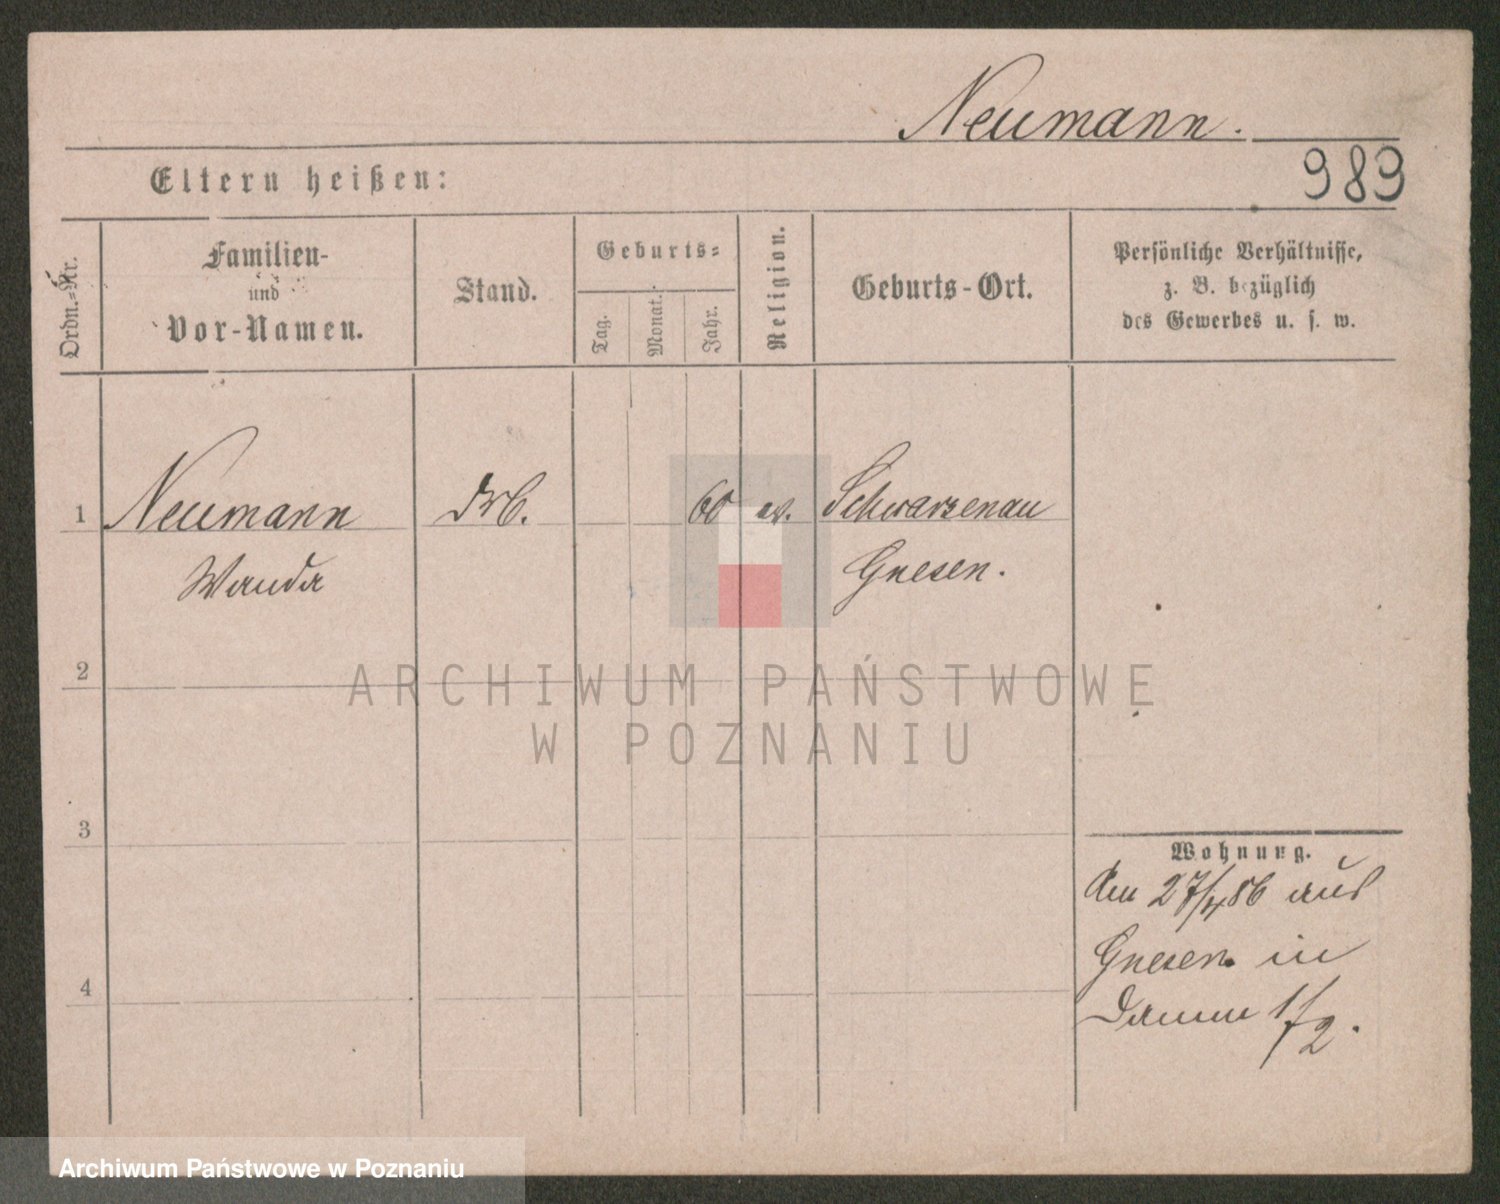 Neumann.
989
Eltern heißen:
Ordn.-Nr.
Familien-
und
Vor-Namen.
Stand.
Geburts-
Tag.
Monat.
Jahr.
Religion.
Geburts-Ort.
Persönliche Verhältnisse,
z. B. bezüglich
des Gewerbes u. s. w.
1
Neumann
60
ev.
Schwarzenau
Wanda
Gnesen.
2
ARCHIWUM PAŃSTWOWE
W POZNANIU
3
Wohnung.
Am 27/4 86 aus
Gnesen in
4
Damm 1/2.
Archiwum Państwowe w Poznaniu